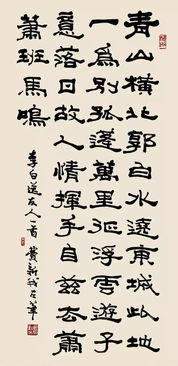 青山橫北郭白水遶東城此地
一爲別孤蓬萬里征浮雲遊子
意落日故人情揮手自茲去蕭
蕭班馬鳴
李白送友人一首 費新我左筆